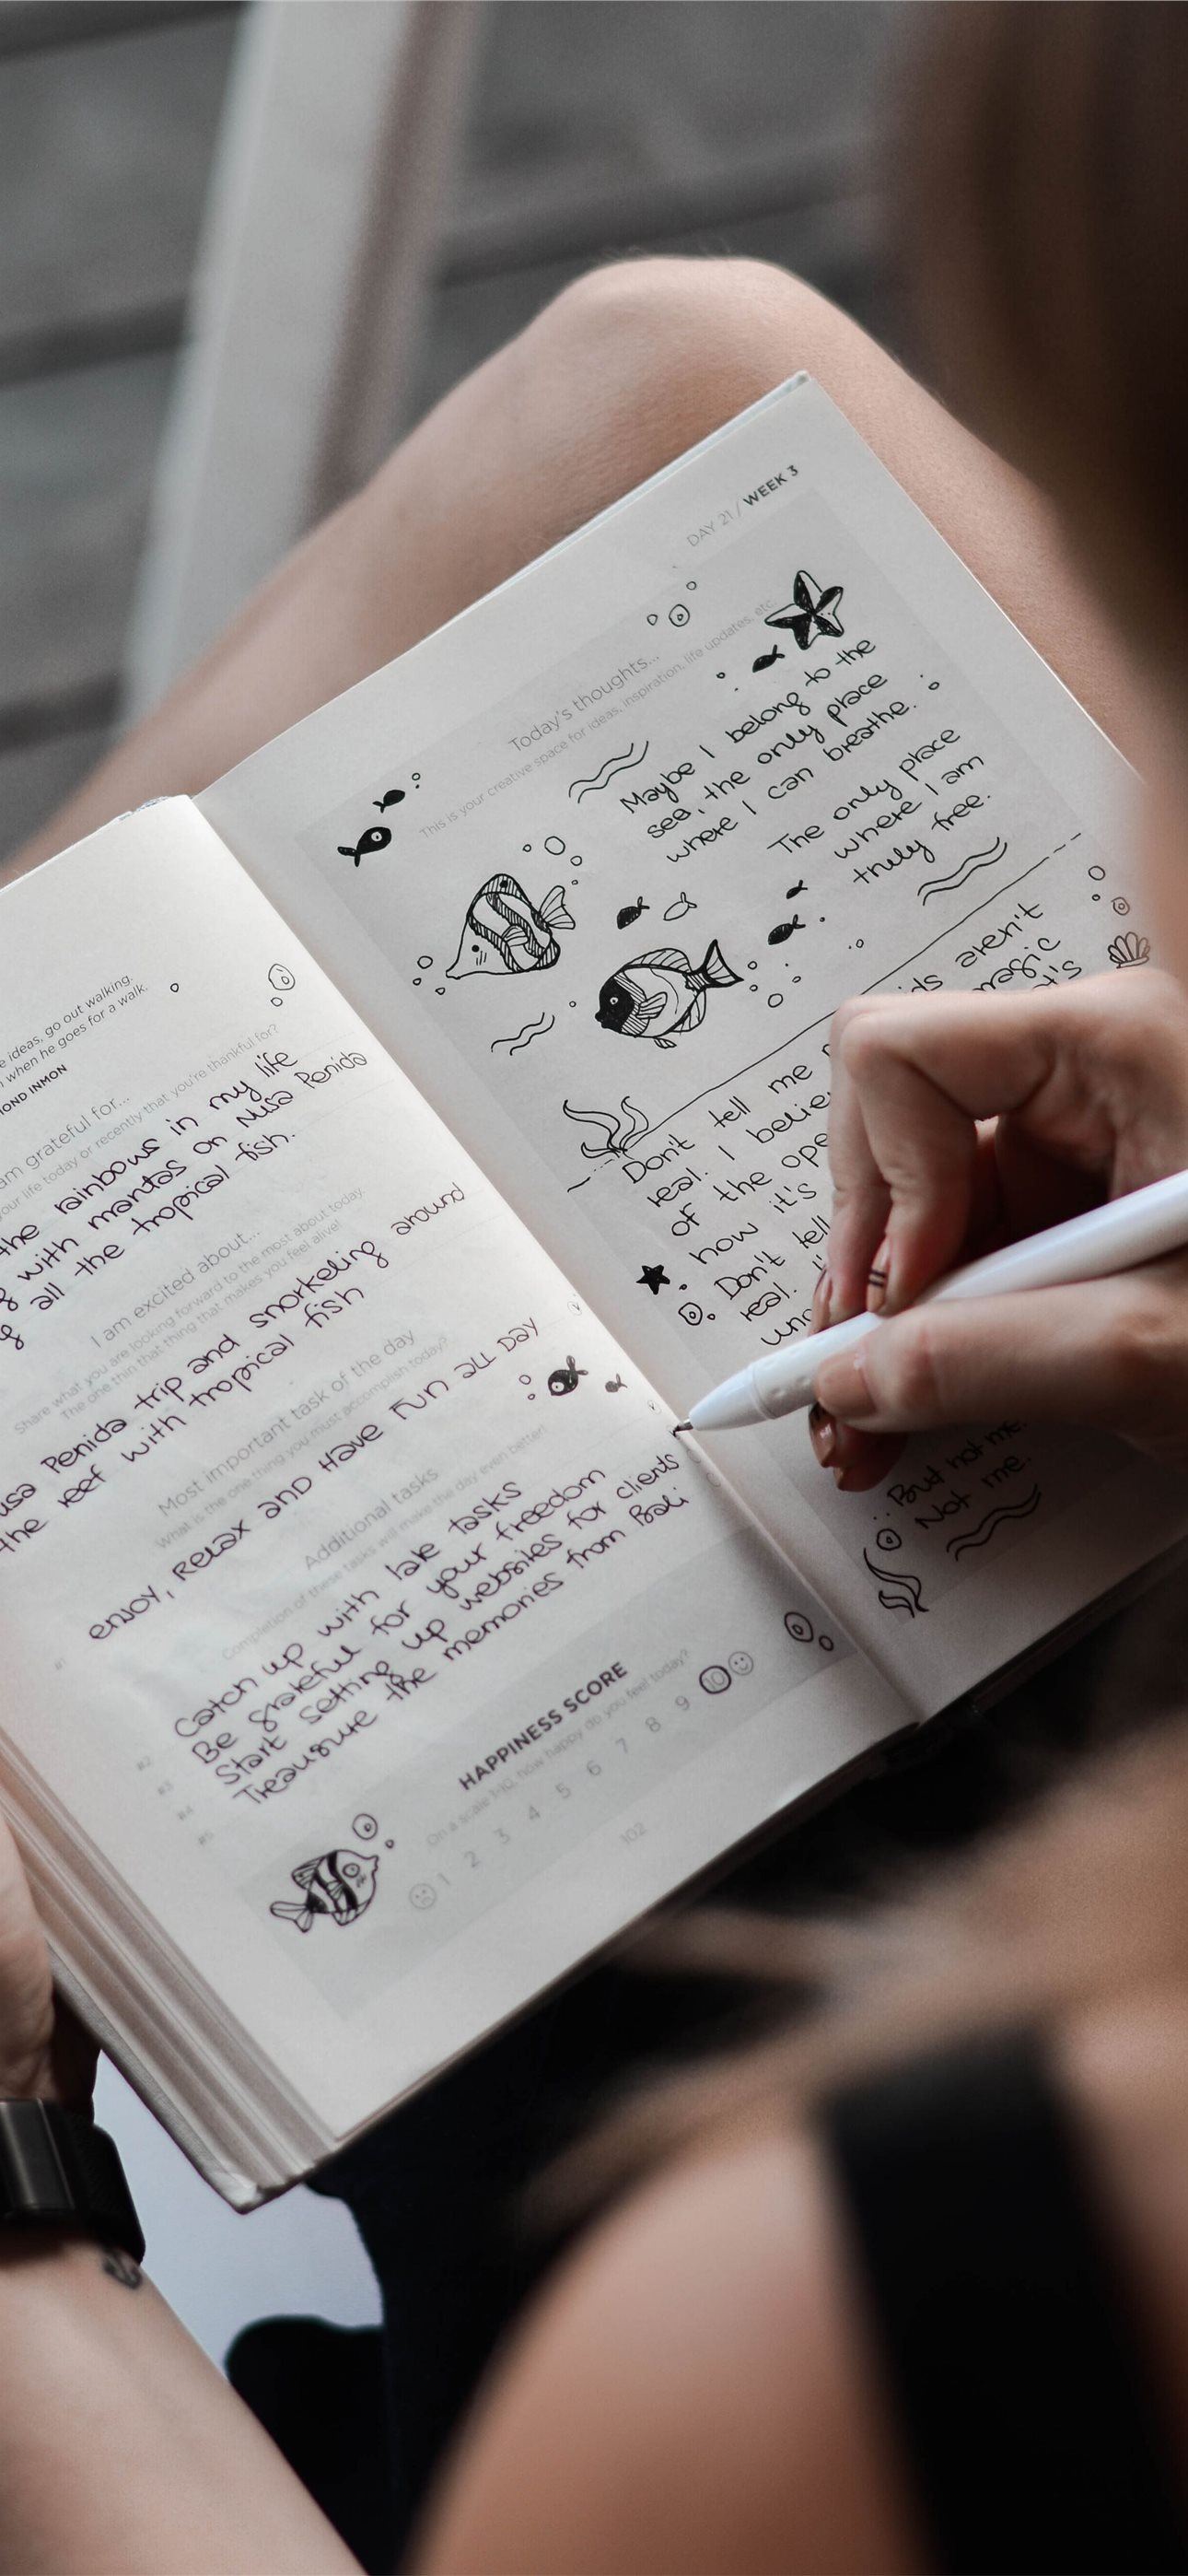 e ideas, go out walking.
when he goes for a walk.
OND INMON
am grateful for...
your life today or recently that you're thankful for?
the rainbows in my life
g with mantas on Nusa Penida
g all the tropical fish.
I am excited about...
Share what you are looking forward to the most about today.
The one thing that makes you feel alive!
usa Penida trip and snorkeling around
the reef with tropical fish
Most important task of the day
What is the one thing you must accomplish today?
#1
enjoy, Relax and Have Fun all Day
Additional tasks
Completion of these tasks will make the day even better!
#2 Catch up with late tasks
#3 Be grateful for your freedom
#4 Start setting up websites for clients
#5 Treausure the memories from Bali
HAPPINESS SCORE
On a scale 1-10, how happy do you feel today?
1 2 3 4 5 6 7 8 9 10
102
DAY 21 / WEEK 3
Today's thoughts...
This is your creative space for ideas, inspiration, life updates, etc.
Maybe I belong to the
sea, the only place
where I can breathe.
The only place
where I am
truly free.
ds aren't
magic
t's
Don't tell me
real. I belie
of the ope
how it's
Don't tell
real.
But not me.
Not me.